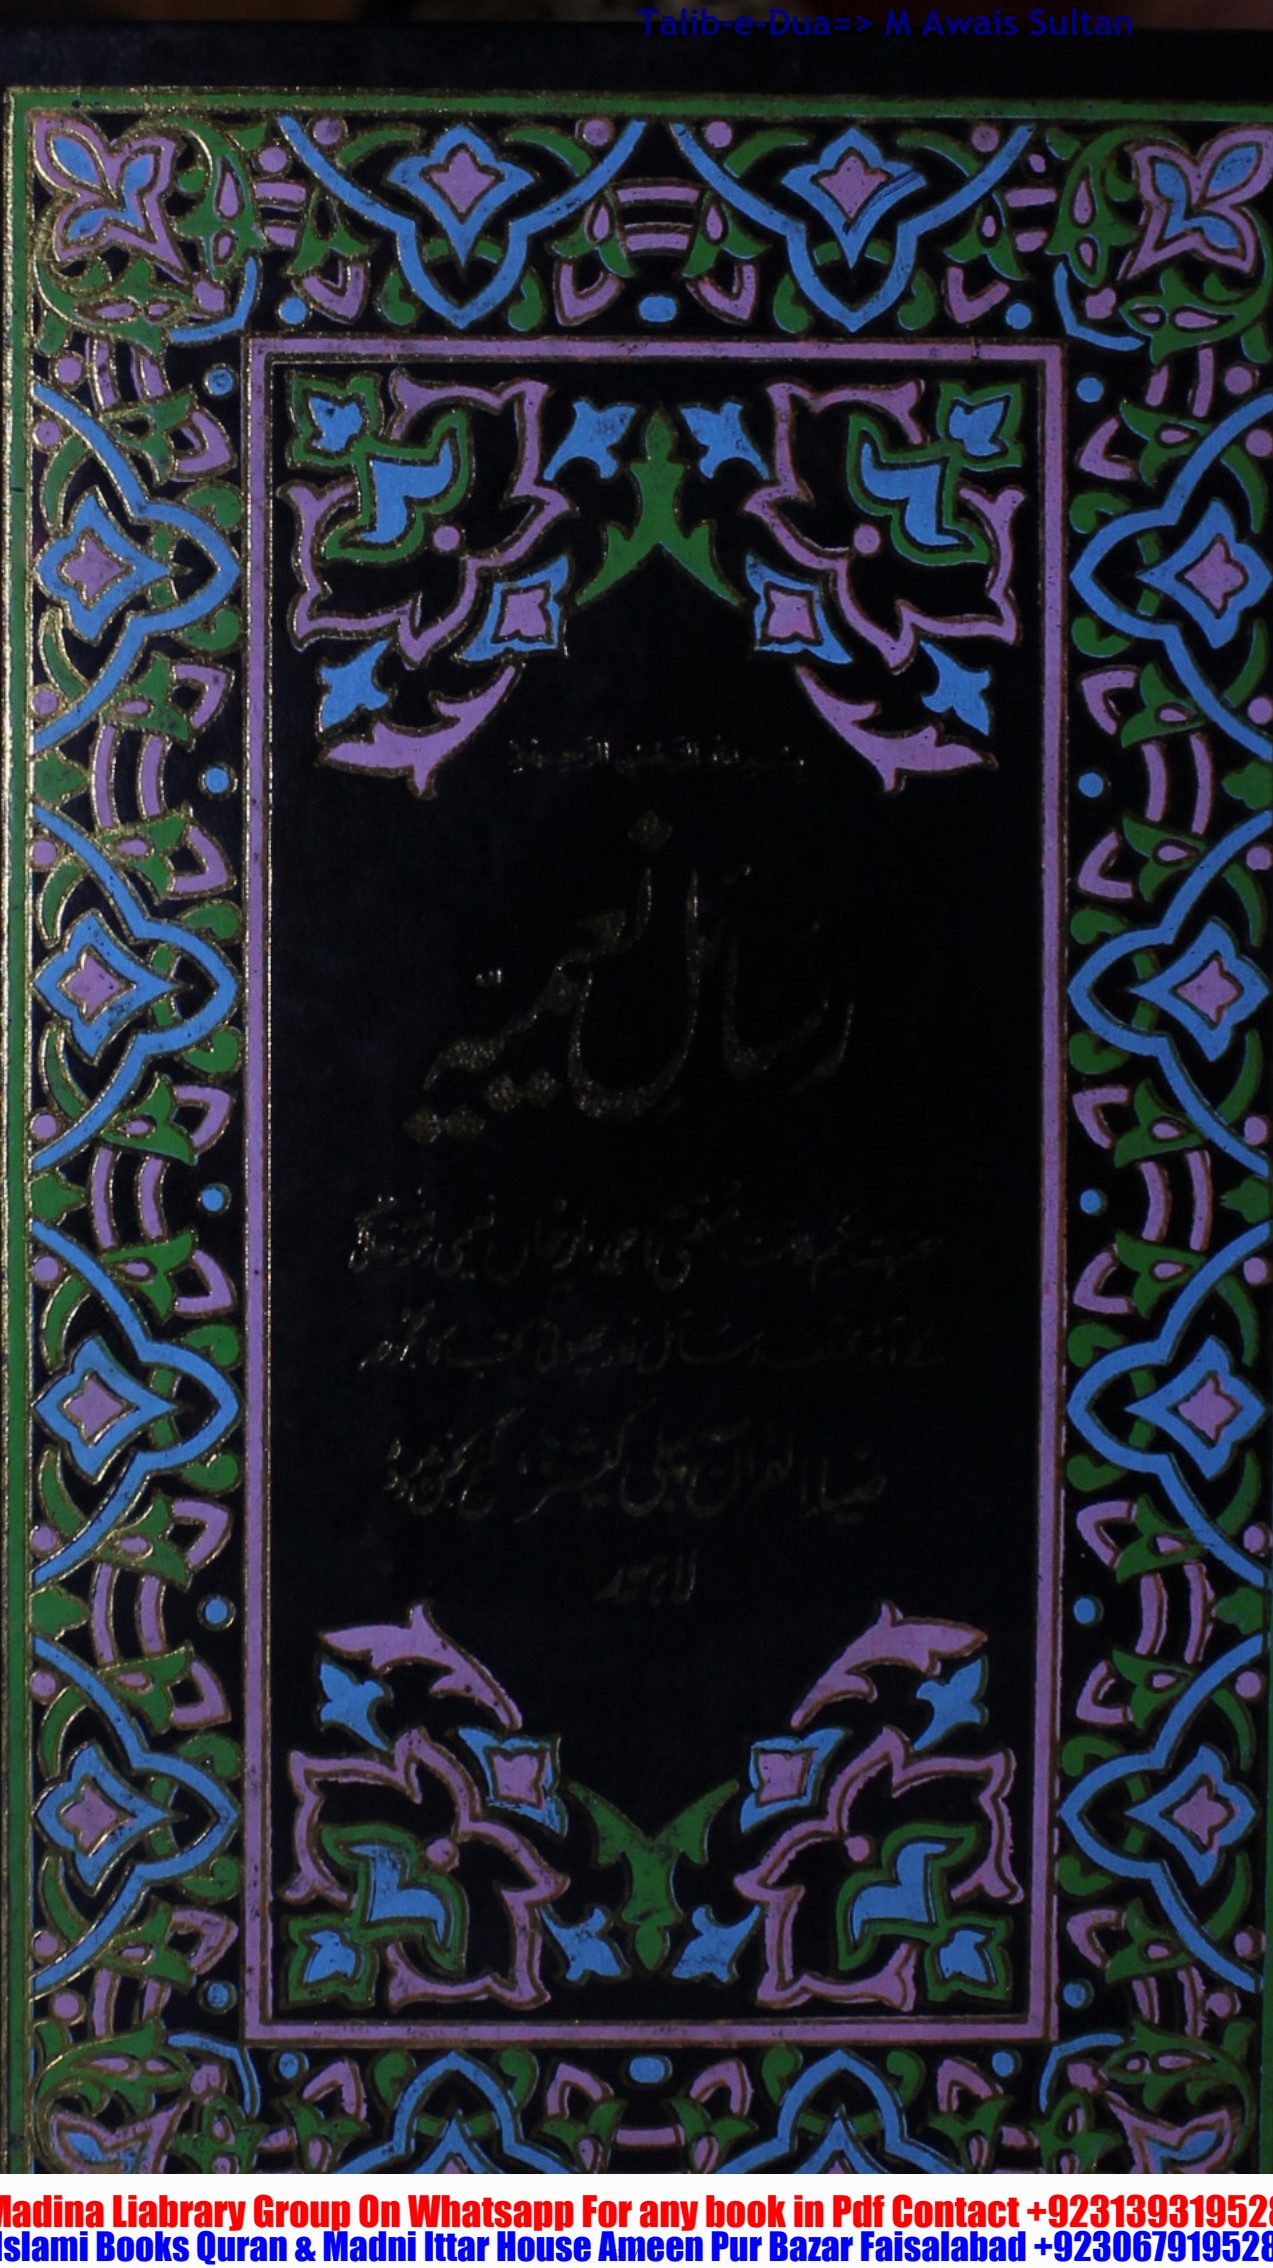 Talib-e-Dua=> M Awais Sultan
بسم الله الرحمن الرحيم
رسائل نعیمیہ
حکیم الامت مفتی احمد یار خان نعیمی
رسائل اور چھوٹی کتب کا مجموعہ
ضیاء القرآن پبلی کیشنز، گنج بخش روڈ
لاہور
Madina Liabrary Group On Whatsapp For any book in Pdf Contact +923139319528
Islami Books Quran & Madni Ittar House Ameen Pur Bazar Faisalabad +923067919528